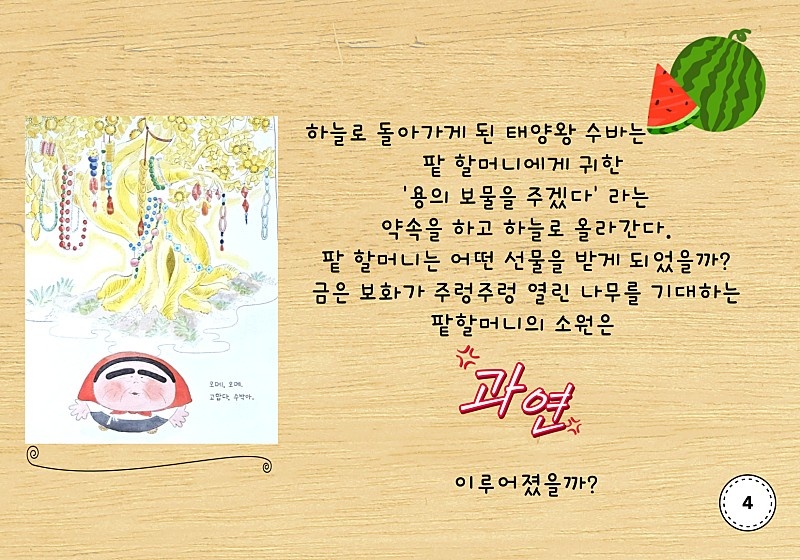 하늘로 돌아가게 된 태양왕 수바는
팥 할머니에게 귀한
'용의 보물을 주겠다' 라는
약속을 하고 하늘로 올라간다.
팥 할머니는 어떤 선물을 받게 되었을까?
금은 보화가 주렁주렁 열린 나무를 기대하는
팥할머니의 소원은
과연
이루어졌을까?
오메, 오메.
고맙다, 수박아.
4